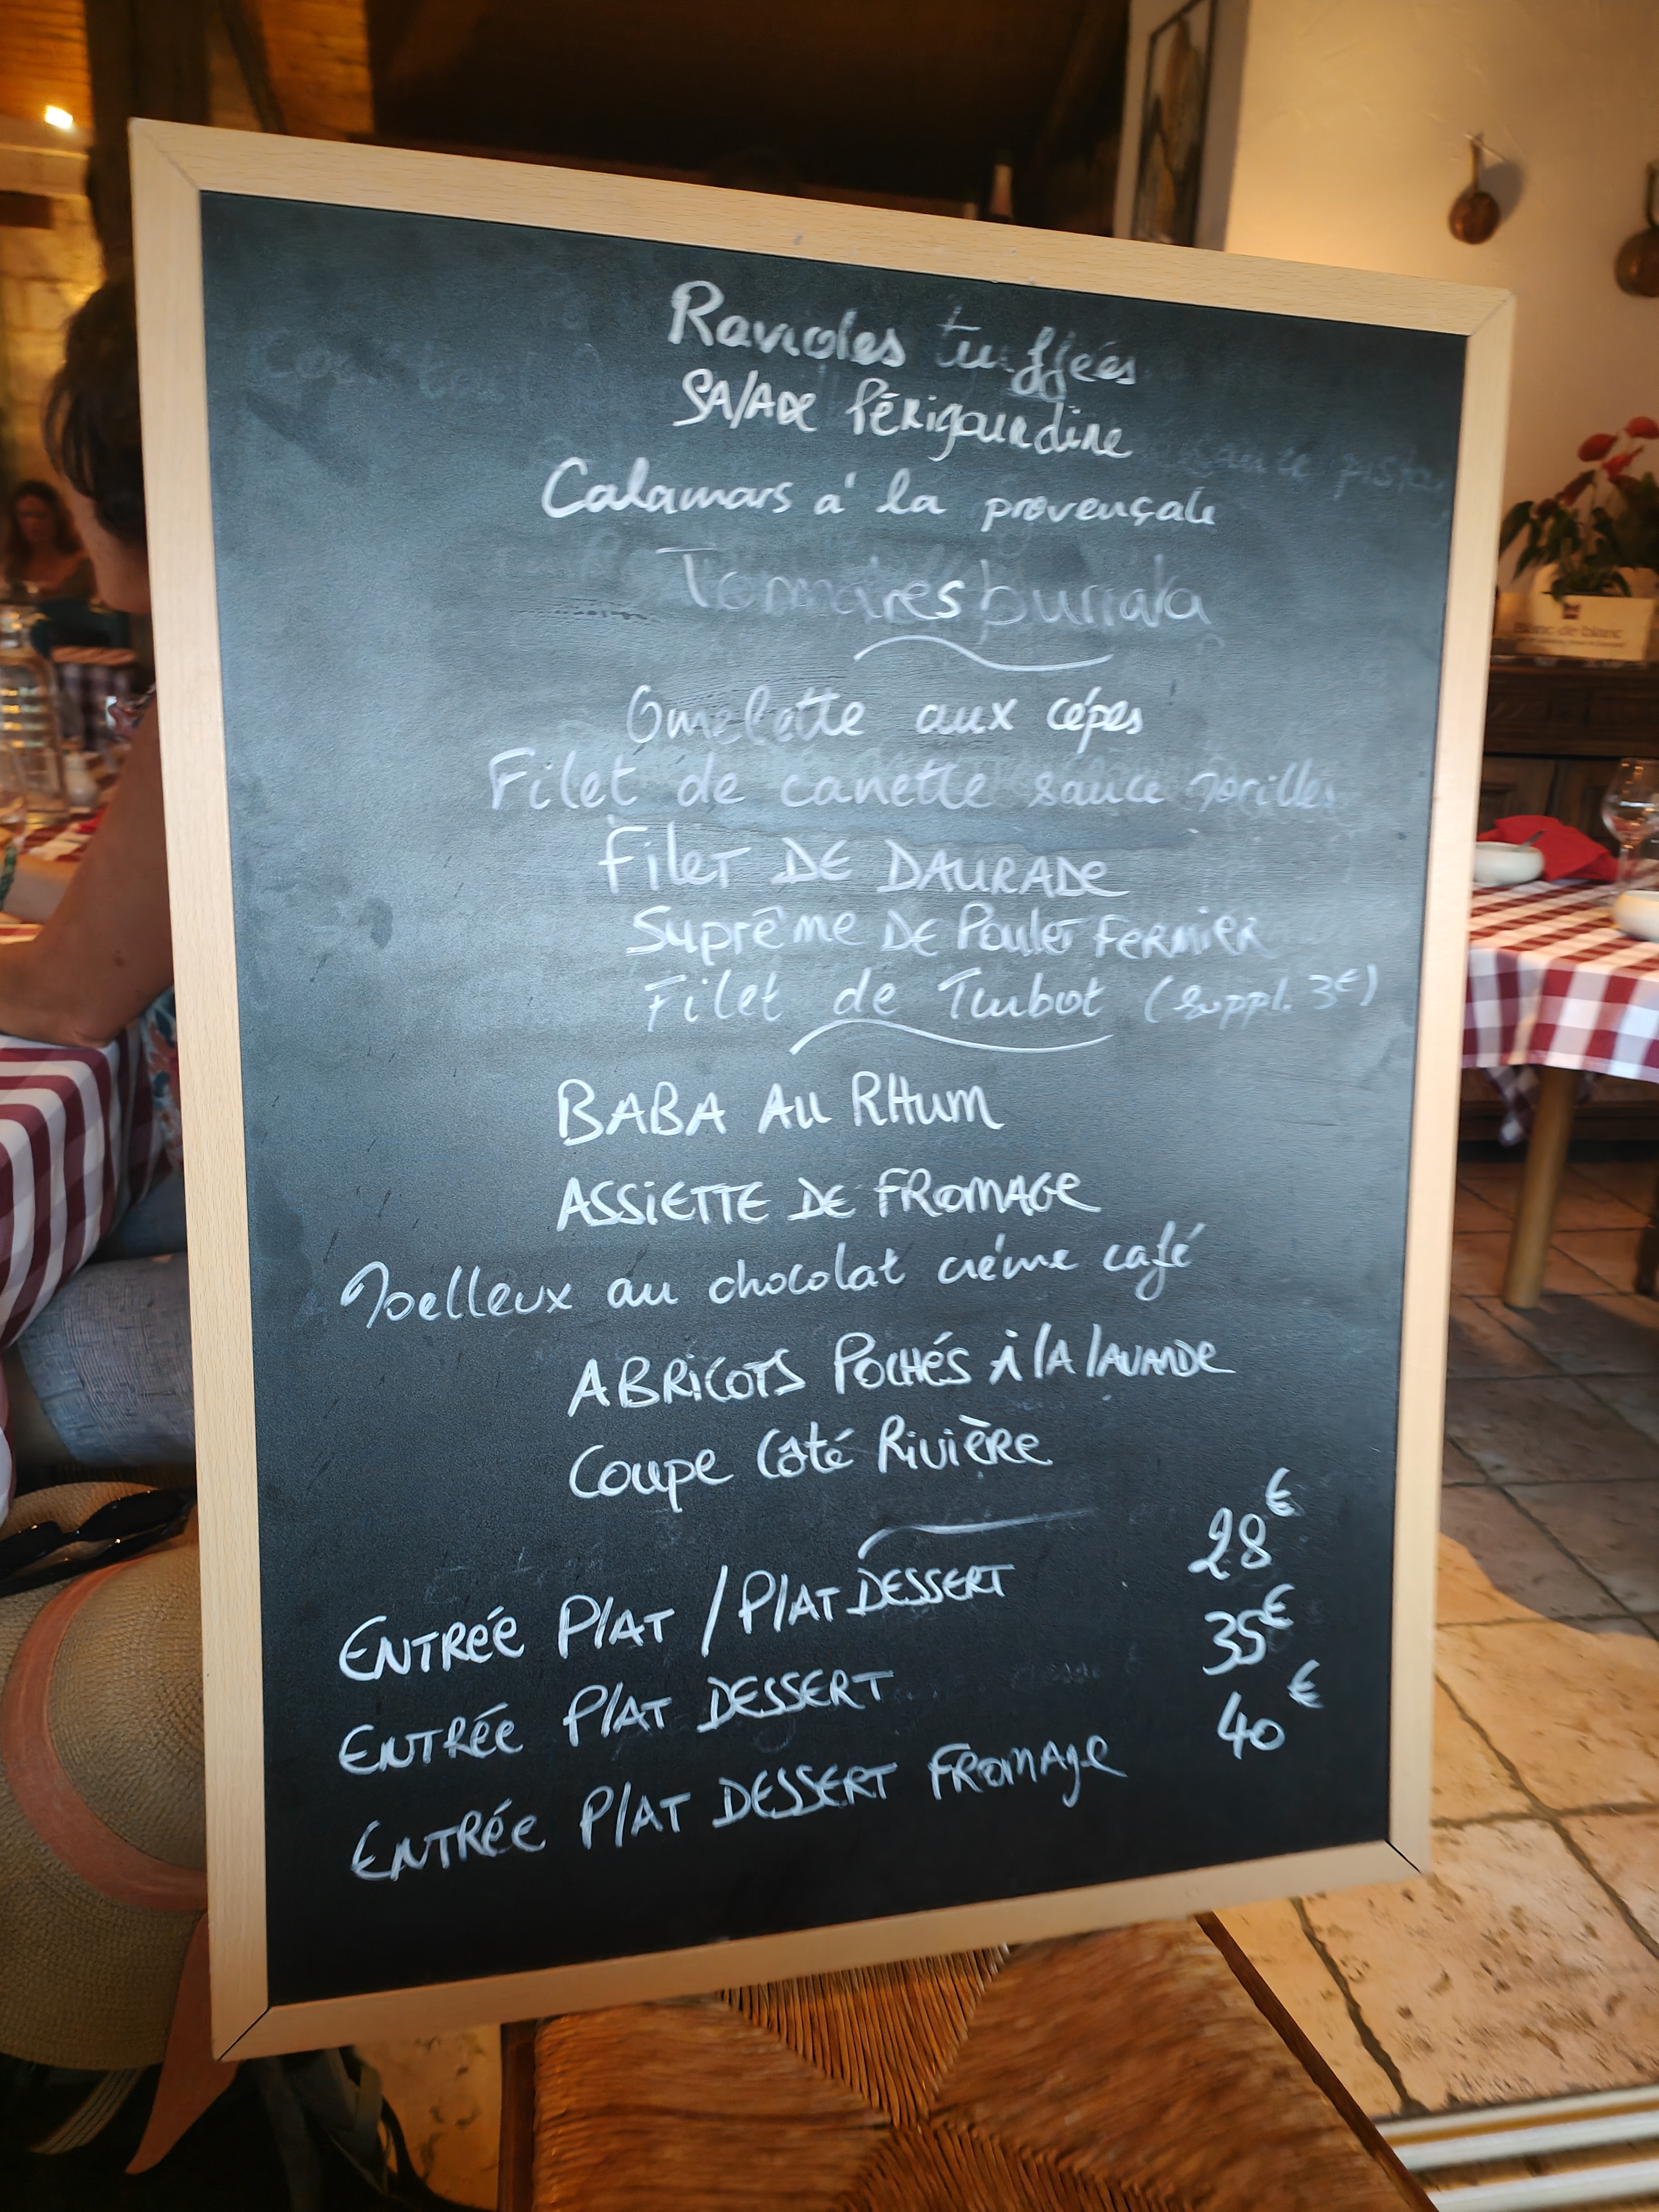 Ravioles truffées
Salade Périgourdine
Calamars à la provençale
Tomates burrata
Omelette aux cépes
Filet de canette sauce morilles
Filet DE DAURADE
Suprême DE Poulet FERMIER
Filet de Turbot (suppl. 3€)
BABA AU RHUM
ASSIETTE DE FROMAGE
Moelleux au chocolat crème café
ABRICOTS POCHÉS À LA LAVANDE
Coupe Côté Rivière
ENTRÉE PLAT / PLAT DESSERT 28€
ENTRÉE PLAT DESSERT 35€
ENTRÉE PLAT DESSERT FROMAGE 40€
Blanc de blanc